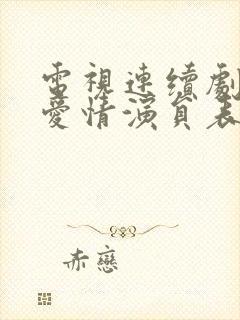 電視連續劇
愛情演員表
赤戀